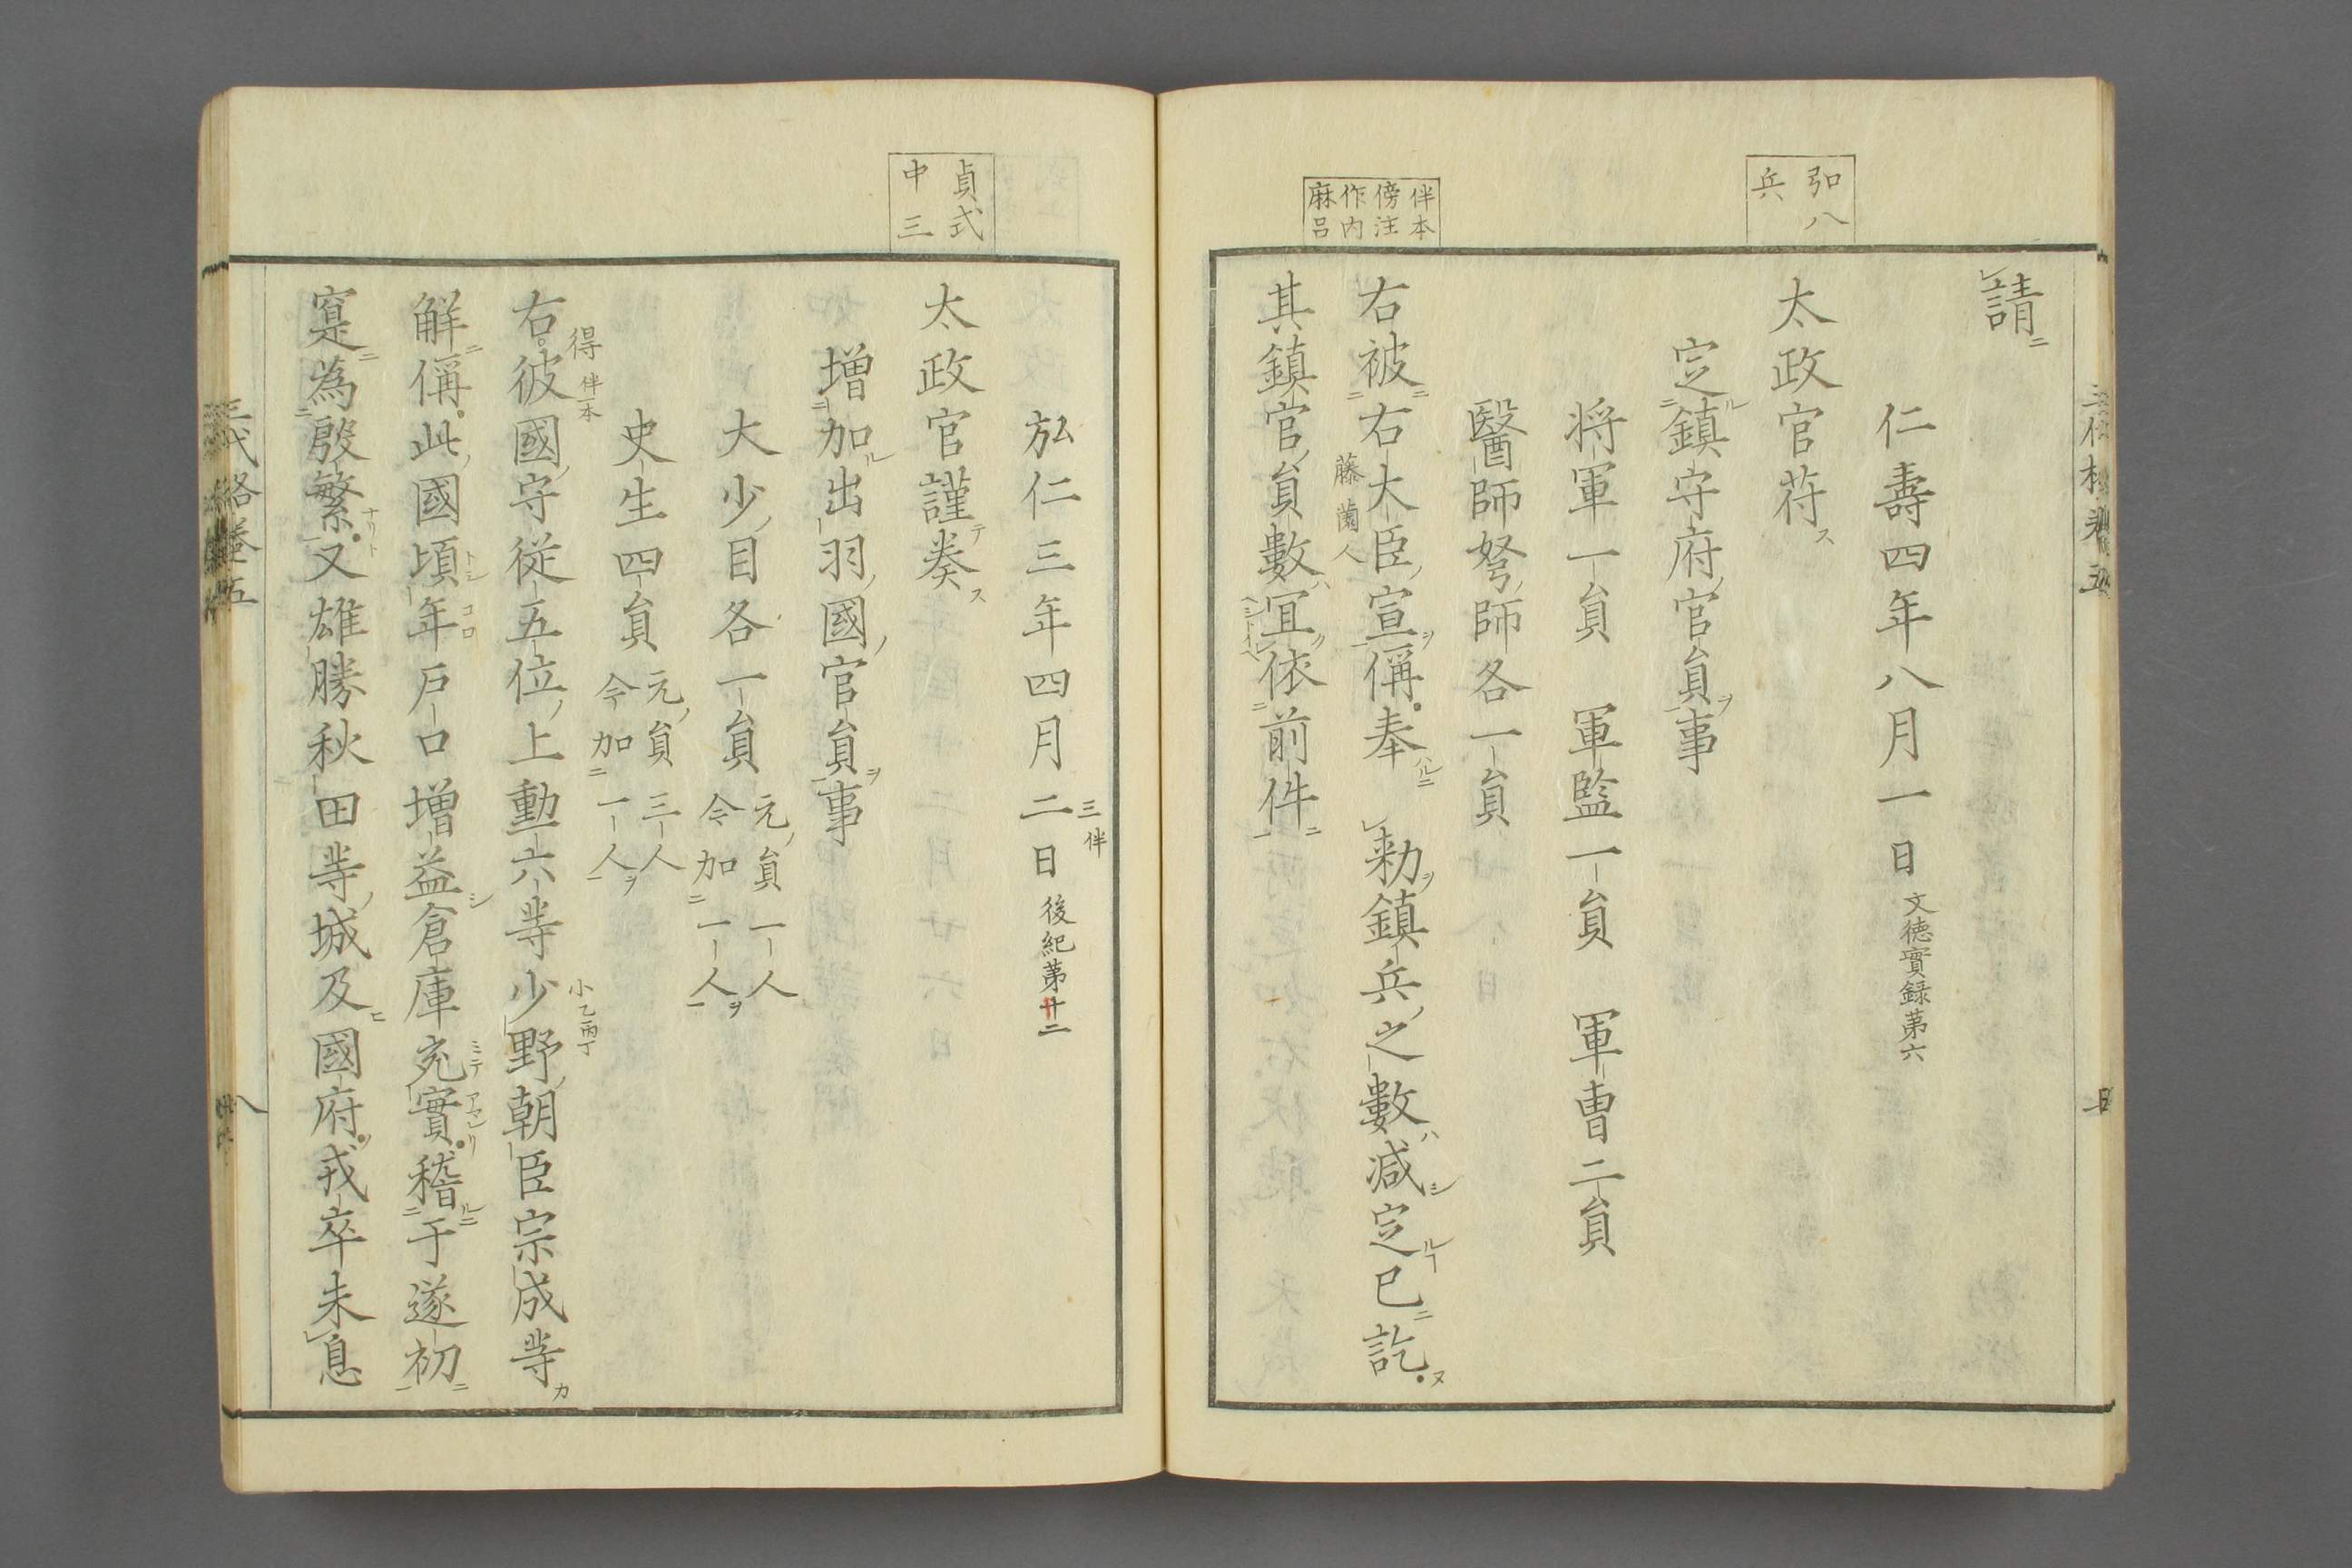 請
仁壽四年八月一日 文徳實録第六
弘八
兵
太政官苻
定鎮守府官員事
将軍一員 軍監一員 軍曹二員
醫師弩師各一員
右被右大臣宣偁奉 勅鎮兵之數減定已訖
藤薗人
伴本
傍注
作内
麻呂
其鎮官員數宜依前件
弘仁三年四月二日 後紀第廿二
三伴
貞式
中三
太政官謹奏
増加出羽國官員事
大少目各一員 元員一人
今加一人
史生四員 元員三人
今加一人
右彼國守従五位上勳六等少野朝臣宗成等
得伴本
小乙丙丁
解偁此國頃年戸口増益倉庫充實稽于遂初
寔為殷繁又雄勝秋田等城及國府戎卒未息
三代格巻五
八